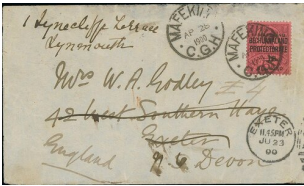 1 Lynecliffe Terrace
Tynemouth
MAFEKING
AP 26
1900
C.G.H
MAFEKING
C.G.H
BECHUANALAND
PROTECTORATE
Mrs W. A. Godley
42 West Southern Hay
Exeter
N. Devon
England
EXETER
JU 23
00